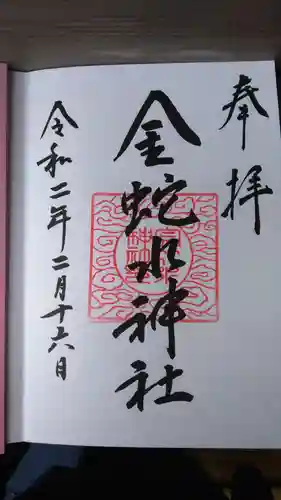 奉拝
金蛇水神社
令和二年二月十六日